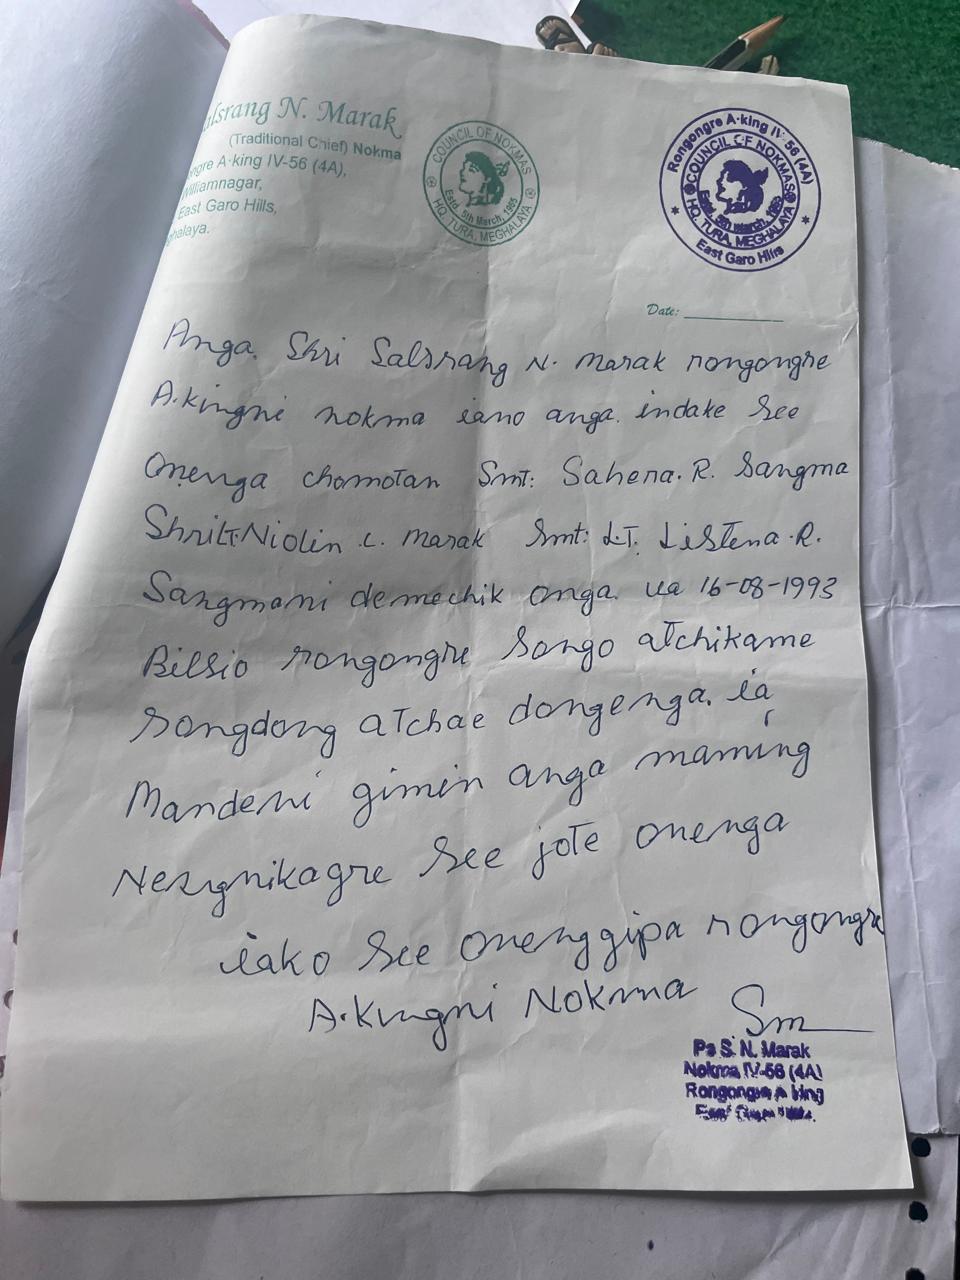 alsrang N. Marak
(Traditional Chief) Nokma
ngre A·king IV-56 (4A),
Williamnagar,
East Garo Hills,
ghalaya.
COUNCIL OF NOKMAS
Estd. 5th March, 1985
HQ. TURA, MEGHALAYA
Rongongre A·king IV-56 (4A)
COUNCIL OF NOKMAS
Estd. 5th March, 1985
HQ. TURA, MEGHALAYA
East Garo Hills
Date:
Anga. Shri Salsrang N. Marak rongongre
A.kingni nokma iano anga. indake See
onenga chamotan Smt: Sahera. R. Sangma
Shri Lt. Niolin c. marak Smt: LT. Listena. R.
Sangmani demechik onga. ua 16-08-1993
Bilsio rongongre Songo atchikame
Songdong atchae dongenga. ia
Mandeni gimin anga maming
Nesignikagre See jote onenga
iako See onenggipa rongongre
A.kingni Nokma Sm
Pa S. N. Marak
Nokma IV-56 (4A)
Rongongre A king
East Garo Hills.